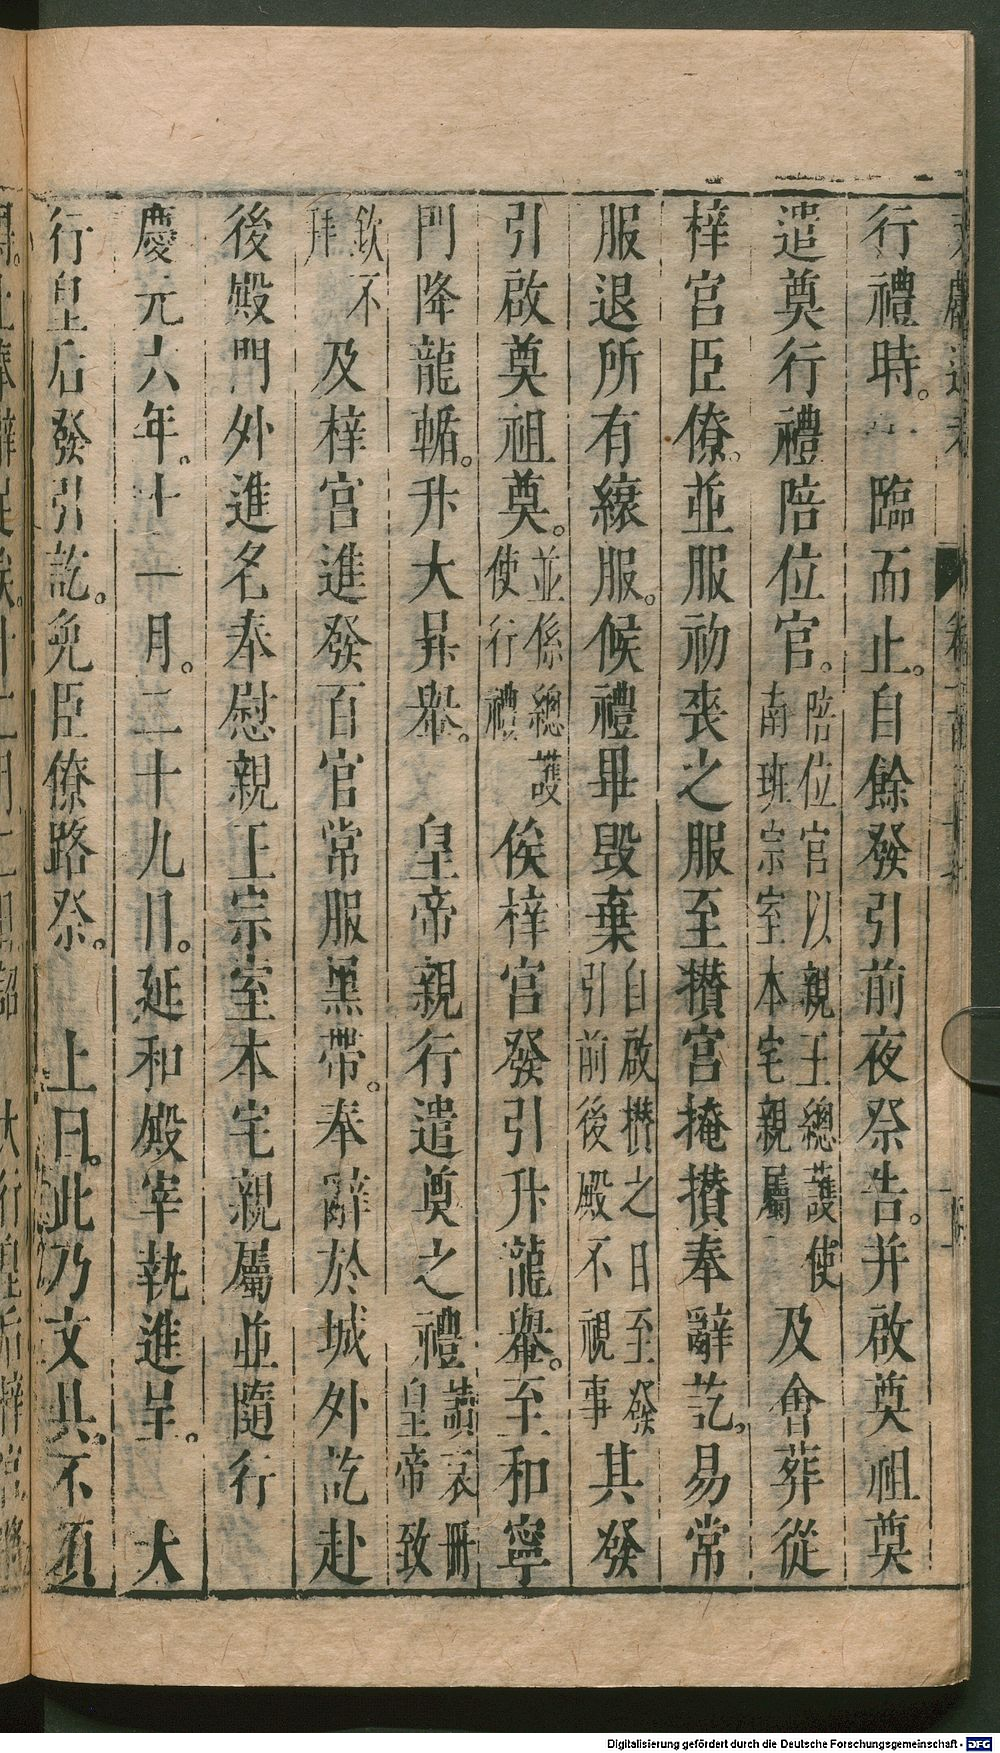 行禮時。臨而止。自餘發引前夜祭告。并啟奠祖奠
遣奠行禮陪位官。陪位官以親王總護使南班宗室本宅親屬及會葬從
梓宮臣僚。並服初喪之服至攢宮掩攢奉辭訖。易常
服退所有縗服。候禮畢毀棄自啟攢之日至發引前後殿不視事其發
引啟奠祖奠。並係總護使行禮俟梓宮發引升龍轝。至和寧
門降龍輴。升大昇轝。皇帝親行遣奠之禮讀哀冊皇帝致
欽不拜及梓宮進發百官常服黑帶。奉辭於城外訖赴
後殿門外進名奉慰親王宗室本宅親屬並隨行
慶元六年。十一月。二十九日。延和殿宰執進呈。大
行皇后發引訖。免臣僚路祭。上曰。此乃文具。不須
Digitalisierung gefördert durch die Deutsche Forschungsgemeinschaft - DFG